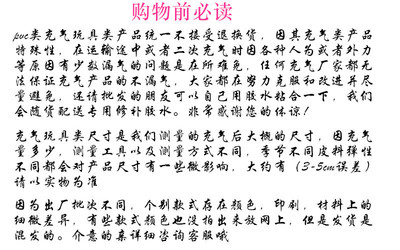 购物前必读
pvc类充气玩具类产品统一不接受退换货，因其充气类产品
特殊性，在运输途中或者二次充气时因各种人为或者外力
等原因有少数漏气的问题是在所难免，任何充气厂家都无
法保证充气产品的不漏气，大家都在努力克服和改进并尽
量避免，还请批发的朋友可以自己用胶水粘合一下，我们
会随货配送专用修补胶水。非常感谢您的体谅！
充气玩具类尺寸是我们测量的充气后大概的尺寸，因充气
量多少，测量工具以及测量方式不同，季节不同皮料弹性
不同都会对产品尺寸有一些微影响，大约有（3-5cm误差）
请以实物为准
因为出厂批次不同，个别款式存在颜色，印刷，材料上的
细微差异，有些款式颜色也没拍出来放网上，但是发货是
混发的。介意的亲详细咨询客服哦